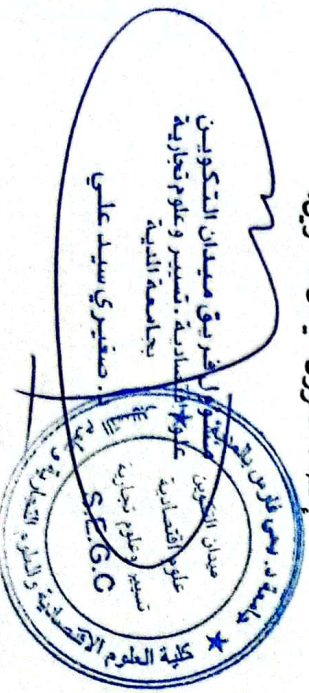 مسؤول فريق ميدان التكوين
علوم اقتصادية، تسيير وعلوم تجارية
بجامعة المدية
د. صغيري سيد علي
جامعة د. يحي فارس بالمدية
ميدان التكوين
علوم اقتصادية
تسيير وعلوم تجارية
S.E.G.C
كلية العلوم الاقتصادية والعلوم التجارية وعلوم التسيير